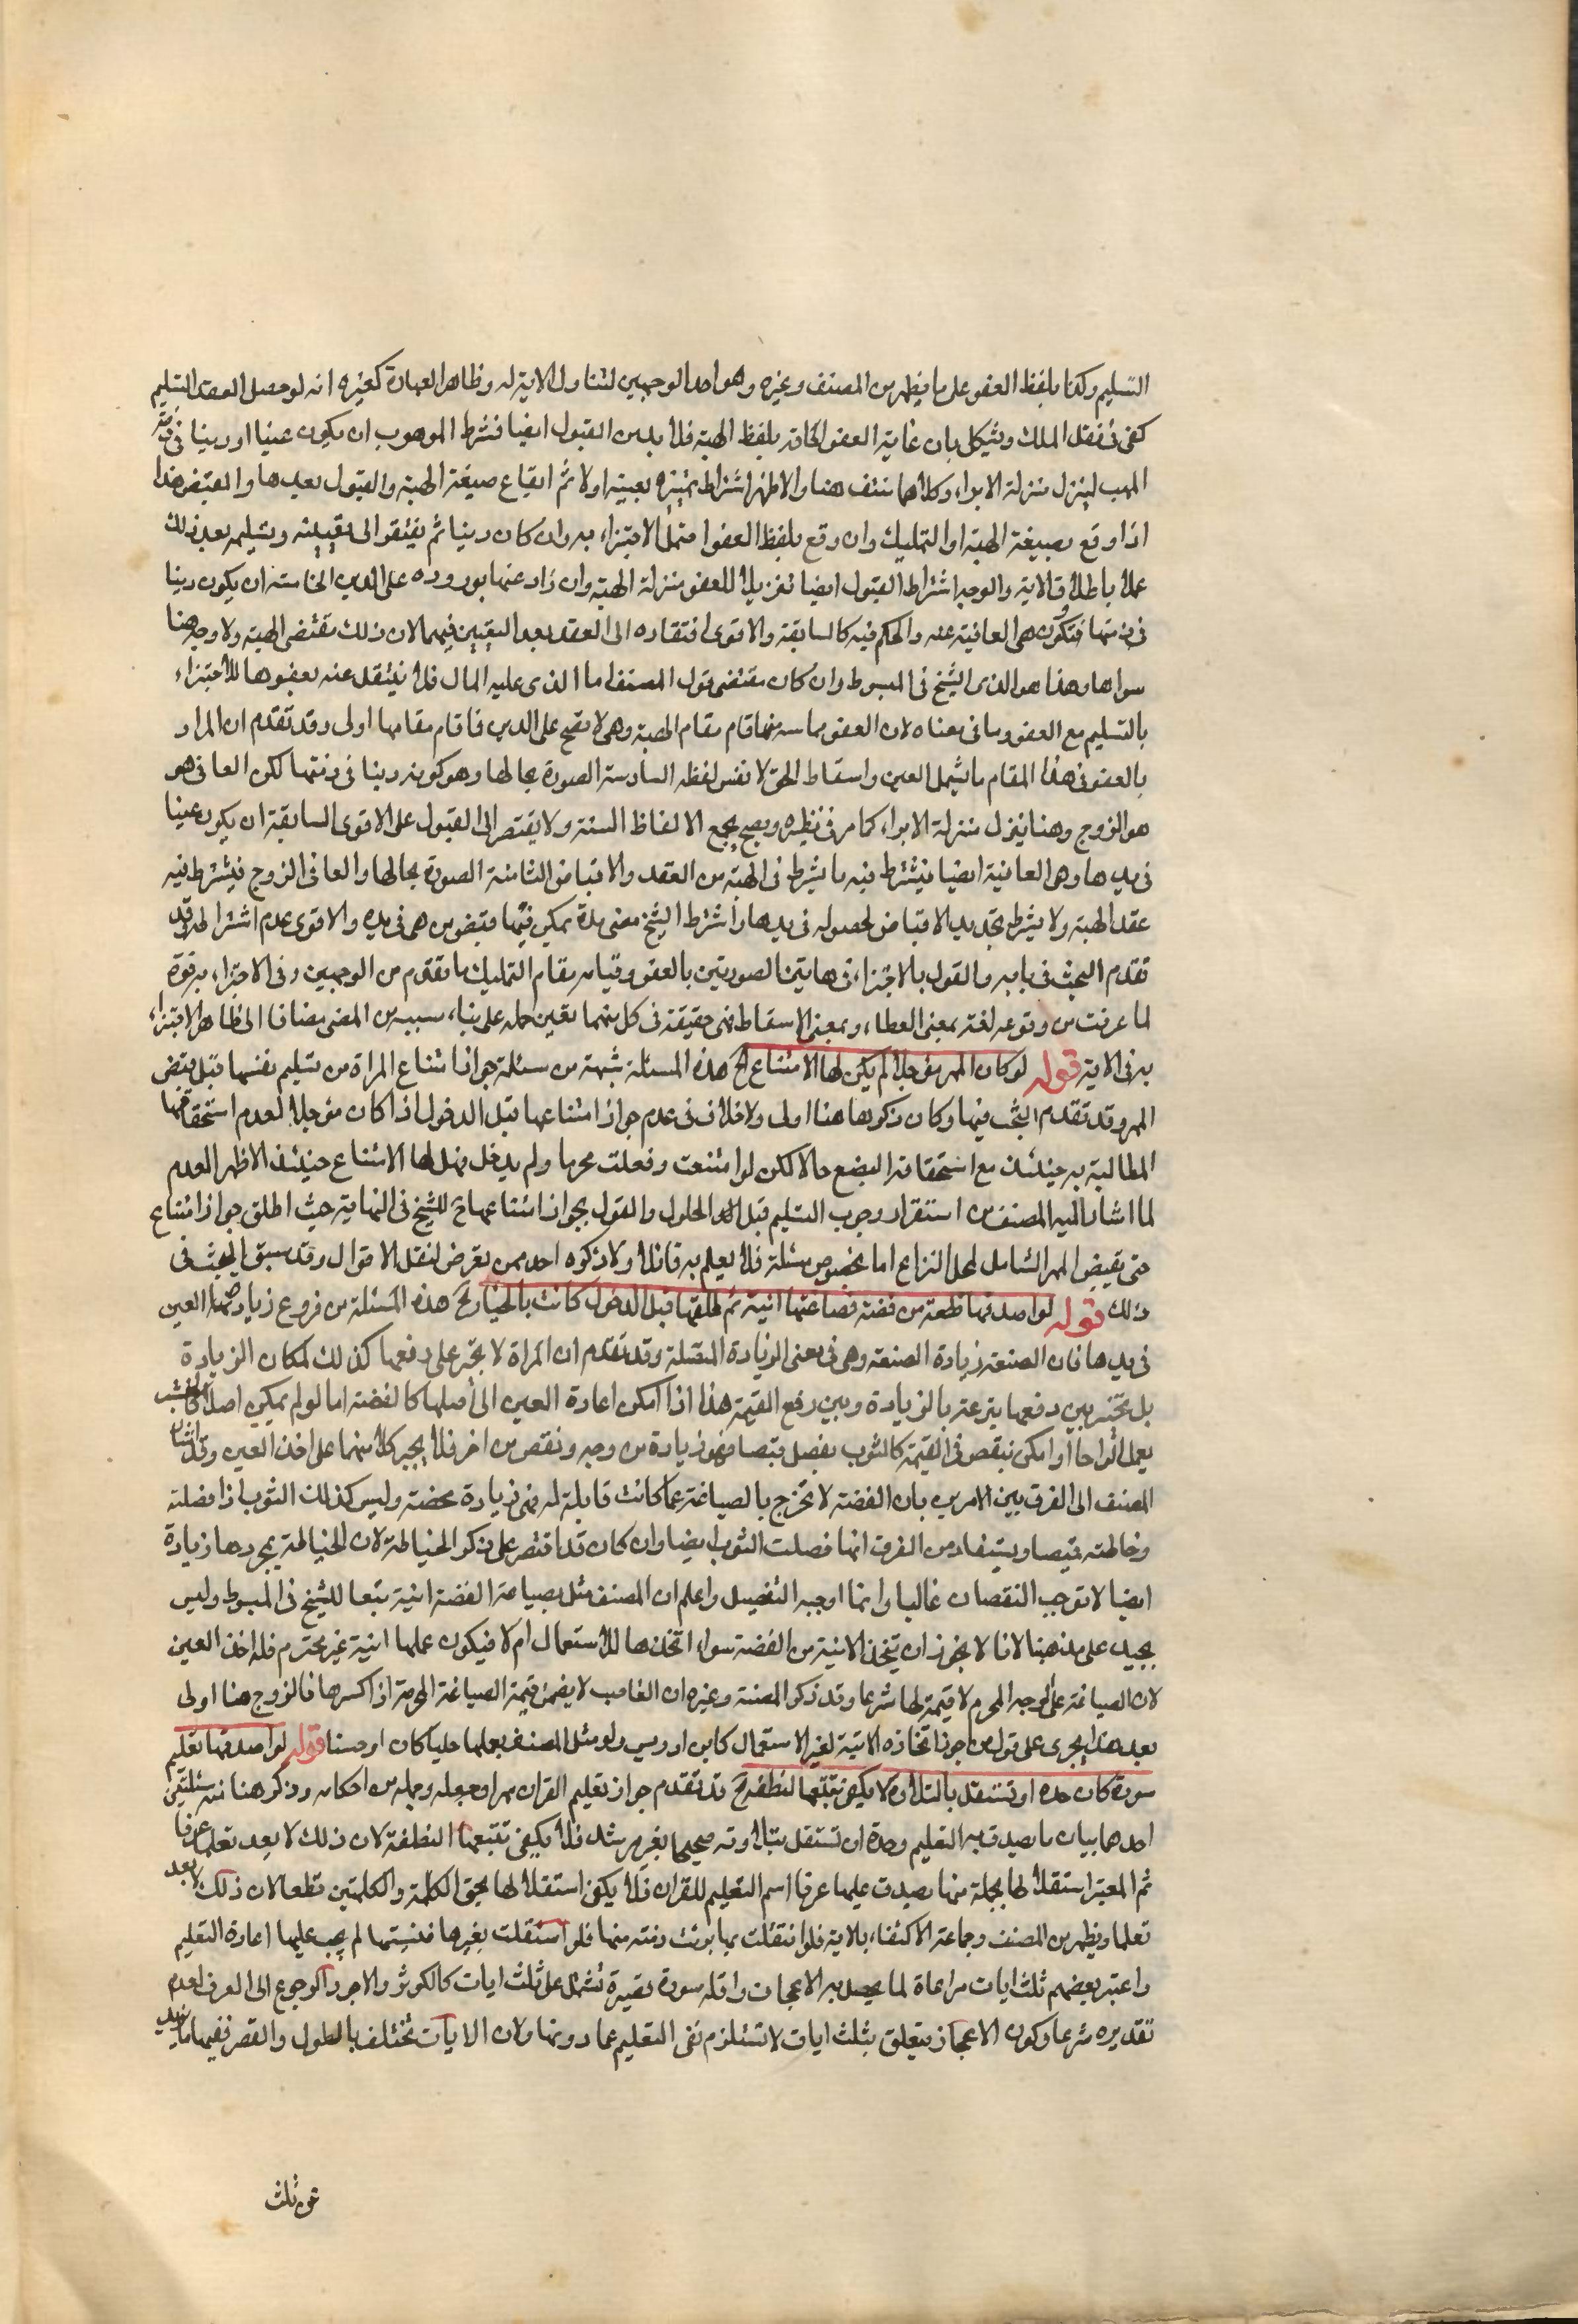 التسليم وكذا بلفظ العفو على ما يظهر من المصنف وغيره وهو احد الوجهين لتناول الاية له وظاهر العبارة كغيره انه لو حصل العقد التسليم
كفى في نقل الملك ويشكل بان غاية العفو الحاقه بلفظ الهبة فلا بد من القبول ايضا فشرط الموهوب ان يكون عينا او دينا في ذمة
المهب لينزل منزلة الابراء وكلاهما منتف هنا والاظهر اشتراط تميزه بعينه اولا ثم ايقاع صيغة الهبة والقبول بعدها والقبض هذا
اذا وقع بصيغة الهبة او التمليك وان وقع بلفظ العفو احتمل الاجتزاء به وان كان دينا ثم يفتقر الى تقبيله وتسليمه بعد ذلك
عملا باطلاق الاية والوجه اشتراط القبول ايضا تنزيلا للعفو منزلة الهبة وان زاد عنها بوروده على الدين الخامسة ان يكون دينا
في ذمتها فتكون هي العافية عنه والحكم فيه كالسابقة والاقوى افتقاره الى العقد بعد التعيين فيهما لان ذلك مقتضى الهبة ولا وجه هنا
سواها وهذا هو الذي الشيخ في المبسوط وان كان مقتضى قول المصنف اما الذي عليه المال فلا ينتقل عنه بعفوها للاجتزاء
بالتسليم مع العفو وما في معناه لان العفو مما سه منها قام مقام الهبة وهي لا تصح على الدين فاقام مقامها اولى وقد تقدم ان المراد
بالعفو في هذا المقام ما يشمل العين واسقاط الحق لا نفس لفظه السادسة الصورة بحالها وهو كونه دينا في ذمتها لكن العافي هو
هو الزوج وهنا ينزل منزلة الابراء كما مر في نظيره ويصح بجميع الالفاظ الستة ولا يفتقر الى القبول على الاقوى السابقة ان يكون عينا
في يدها وهي العافية ايضا فيشترط فيه ما يشرط في الهبة من العقد والاقباض الثامنة الصورة بحالها والعافي الزوج فيشترط فيه
عقد الهبة ولا يشرط تجديد الاقباض لحصوله في يدها واشترط الشيخ مضى مدة يمكن فيها قبض من هي في يده والاقوى عدم اشتراطه وقد
تقدم البحث في بابه والقول بالاجتزاء في هاتين الصورتين بالعفو وقيامه مقام التمليك ما تقدم من الوجهين وفي الاجتزاء به قوة
لما عرفت من وقوعه لغة بمعنى العطاء وبمعنى الاسقاط فهي حقيقة في كل منهما تعين حمله على بناء سببه من المعنى مضافا الى ظاهر الاجتزاء
به في الاية قوله لو كان المهر مؤجلا لم يكن لها الامتناع الخ هذه المسئلة شبهة من مسئلة جواز امتناع المراة من تسليم نفسها قبل قبض
المهر وقد تقدم البحث فيها وكان ذكرها هنا اولى ولا خلاف في عدم جواز امتناعها قبل الدخول اذا كان مؤجلا لعدم استحقاقها
المطالبة به حينئذ مع استحقاقه البضع حالا لكن لو امتنعت وفعلت محرما ولم يدخل فهل لها الامتناع حينئذ الاظهر العدم
لما اشار اليه المصنف من استقرار وجوب التسليم قبل الحلول والقول بجواز امتناعها ح للشيخ في النهاية حيث اطلق جواز امتناع
حتى تقبض المهر الشامل لمحل النزاع اما بخصوص مسئلة فلا يعلم به قائلا ولا ذكره احد ممن تعرض لنقل الاقوال وقد سبق البحث في
ذلك قوله لو اصدقها قطعة من فضة فصاغتها انية ثم طلقها قبل الدخول كانت بالخيار الخ هذه المسئلة من فروع زيادة العين
في يدها فان الصنعة زيادة الصنعة وهي في معنى الزيادة المتصلة وقد تقدم ان المراة لا تجبر على دفعها كذلك لمكان الزيادة
بل تخير بين دفعها متبرعة بالزيادة وبين دفع القيمة هذا اذا امكن اعادة العين الى اصلها كالفضة اما لو لم يمكن اصلا كالخشب
يعمل الواحا او امكن بنقص في القيمة كالثوب يفصل قميصا فهو زيادة من وجه ونقص من اخر فلا يجبر كلا منهما على اخذ العين وقد اشار
المصنف الى الفرق بين الامرين بان الفضة لا تخرج بالصياغة عما كانت قابلة له فهي زيادة محضة وليس كذلك الثوب اذا فصلته
وخاطته قميصا ويستفاد من الفرق انها فصلت الثوب ايضا وان كان قد اقتصر على ذكر الخياطة لان الخياطة بمجردها زيادة
ايضا لا توجب النقصان غالبا وانما اوجبه التفصيل واعلم ان المصنف مثل بصياغة الفضة انية تبعا للشيخ في المبسوط وليس
بجيد على مذهبنا لانا لا نجوز ان يتخذ الانية من الفضة سواء اتخذها للاستعمال ام لا فيكون عملها انية غير محترم فله اخذ العين
لان الصياغة على الوجه المحرم لا قيمة لها شرعا وقد ذكر المصنف وغيره ان الغاصب لا يضمن قيمة الصياغة المحرمة اذا كسرها فالزوج هنا اولى
بعد هذا يجري على قول من جوز اتخاذ الانية لغير الاستعمال كابن ادريس ولو مثل المصنف بعملها حليا كان اوحسنا قوله لو اصدقها تعليم
سورة كان حده ان تستقل بالتلاوة ولا يكفي تتبعها لنطقه الخ قد تقدم جواز تعليم القران مهرا وجعله وجملة من احكامه وذكر هنا منه مسئلتين
احدهما بيان ما يصدق به التعليم وحده ان تستقل بتلاوته صحيحا بغير مرشد فلا يكفي تتبعها النطقة لان ذلك لا يعد تعلما عرفا
ثم المعتبر استقلالها بجملة منها يصدق عليها عرفا اسم التعليم للقران فلا يكفي استقلالها بنحو الكلمة والكلمتين قطعا لان ذلك لا يعد
تعلما ويظهر من المصنف وجماعة الاكتفاء بالاية فلو انتقلت بها برئت ذمته منها فلو استقلت بغيرها فنسيتها لم يجب عليها اعادة التعليم
واعتبر بعضهم ثلث ايات مراعاة لما يحصل به الاعجاز واقله سورة قصيرة تشتمل على ثلث ايات كالكوثر والاجود الرجوع الى العرف لعدم
تقديره شرعا وكون الاعجاز يتعلق بثلث ايات لا تستلزم نفي التعليم عما دونها ولان الايات تختلف بالطول والقصر ففيها ما يزيد
عن ثلث